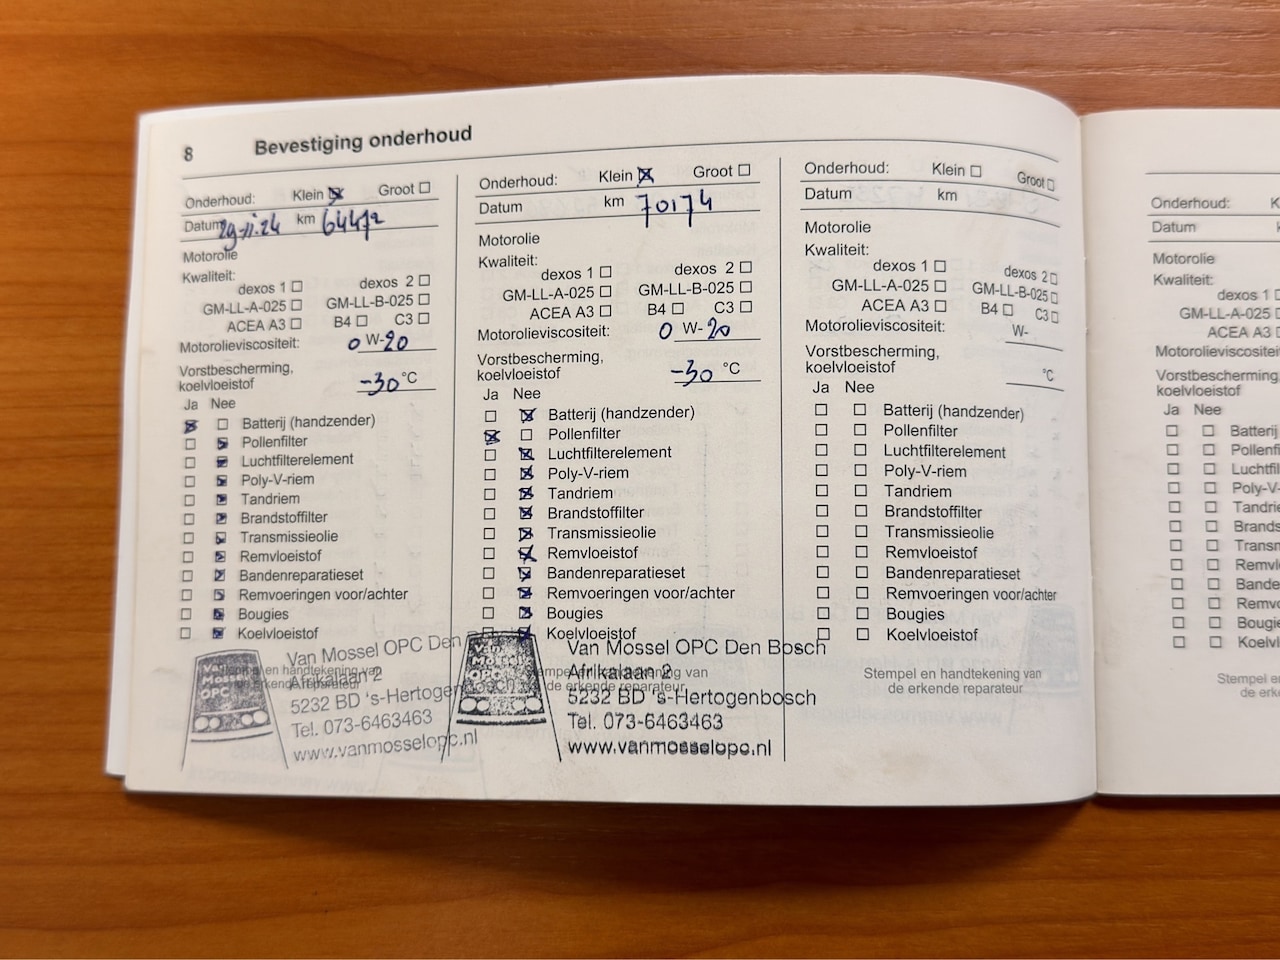 8 Bevestiging onderhoud
Onderhoud: Klein Groot
Datum 29-11-24 km 64472
Motorolie
Kwaliteit:
dexos 1 dexos 2
GM-LL-A-025 GM-LL-B-025
ACEA A3 B4 C3
Motorolieviscositeit: 0 W-20
Vorstbescherming,
koelvloeistof -30 °C
Ja Nee
Batterij (handzender)
Pollenfilter
Luchtfilterelement
Poly-V-riem
Tandriem
Brandstoffilter
Transmissieolie
Remvloeistof
Bandenreparatieset
Remvoeringen voor/achter
Bougies
Koelvloeistof
Stempel en handtekening van
de erkende reparateur
Van Mossel OPC
Van Mossel OPC Den
Afrikalaan 2
5232 BD 's-Hertogen
Tel. 073-6463463
www.vanmosselopc.nl
Onderhoud: Klein Groot
Datum km 70174
Motorolie
Kwaliteit:
dexos 1 dexos 2
GM-LL-A-025 GM-LL-B-025
ACEA A3 B4 C3
Motorolieviscositeit: 0 W-20
Vorstbescherming,
koelvloeistof -30 °C
Ja Nee
Batterij (handzender)
Pollenfilter
Luchtfilterelement
Poly-V-riem
Tandriem
Brandstoffilter
Transmissieolie
Remvloeistof
Bandenreparatieset
Remvoeringen voor/achter
Bougies
Koelvloeistof
Stempel en handtekening van
de erkende reparateur
Van Mossel OPC
Van Mossel OPC Den Bosch
Afrikalaan 2
5232 BD 's-Hertogenbosch
Tel. 073-6463463
www.vanmosselopc.nl
Onderhoud: Klein Groot
Datum km
Motorolie
Kwaliteit:
dexos 1 dexos 2
GM-LL-A-025 GM-LL-B-025
ACEA A3 B4 C3
Motorolieviscositeit: W-
Vorstbescherming,
koelvloeistof °C
Ja Nee
Batterij (handzender)
Pollenfilter
Luchtfilterelement
Poly-V-riem
Tandriem
Brandstoffilter
Transmissieolie
Remvloeistof
Bandenreparatieset
Remvoeringen voor/achter
Bougies
Koelvloeistof
Stempel en handtekening van
de erkende reparateur
Onderhoud: K
Datum
Motorolie
Kwaliteit:
dexos 1
GM-LL-A-025
ACEA A3
Motorolieviscositei
Vorstbescherming,
koelvloeistof
Ja Nee
Batterij
Pollenfi
Luchtfil
Poly-V-
Tandrie
Brands
Transm
Remvl
Bande
Remvo
Bougie
Koelvl
Stempel e
de erk